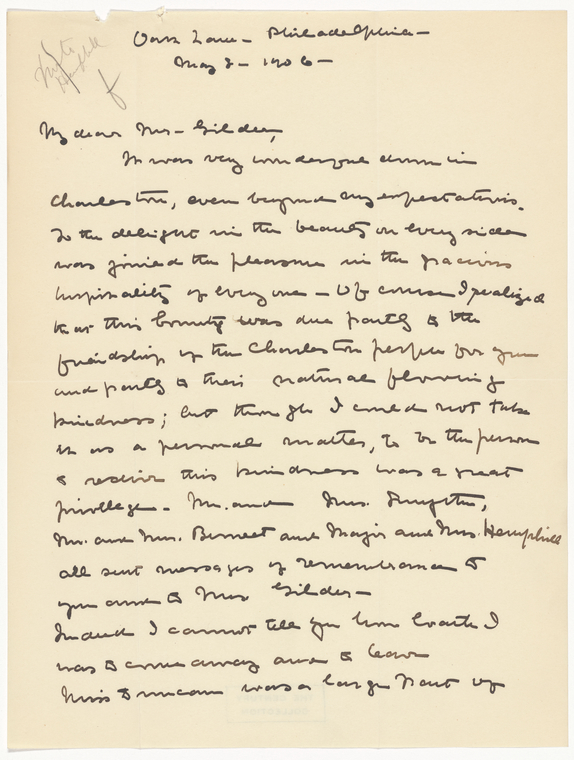 Oak Lane - Philadelphia -
May 2 - 1906 -
My dear Mr - Gilder,
It was very wonderful down in
Charleston, even beyond my expectations.
To the delight in the beauty on every side
was joined the pleasure in the gracious
hospitality of every one - Of course I realized
that this bounty was due partly to the
friendship of the Charleston people for you
and partly to their natural flowing
kindness; but though I could not take
it as a personal matter, to be the person
to receive this kindness was a great
privilege - Mr. and Mrs. Smythe,
Mr. and Mrs. Bennett and Major and Mrs. Hemphill
all sent messages of remembrance to
you and to Mrs Gilder -
Indeed I cannot tell you how loath I
was to come away and to leave
Miss Duncan was a large part of